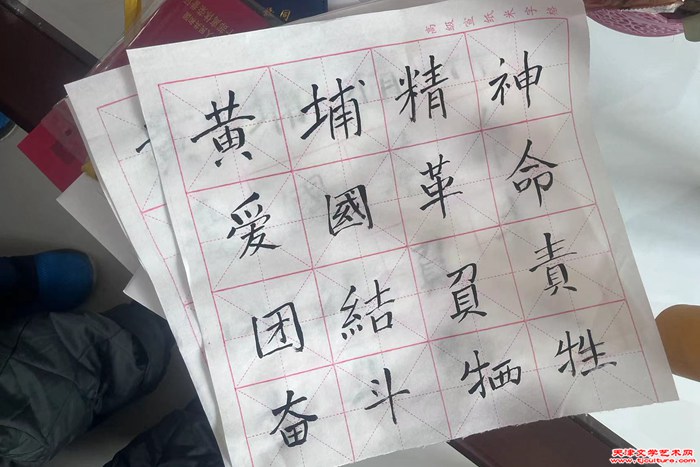 高級宣紙米字格
黄埔精神
爱國革命
团結負責
奋斗牺牲
天津文学艺术网
www.tjculture.com